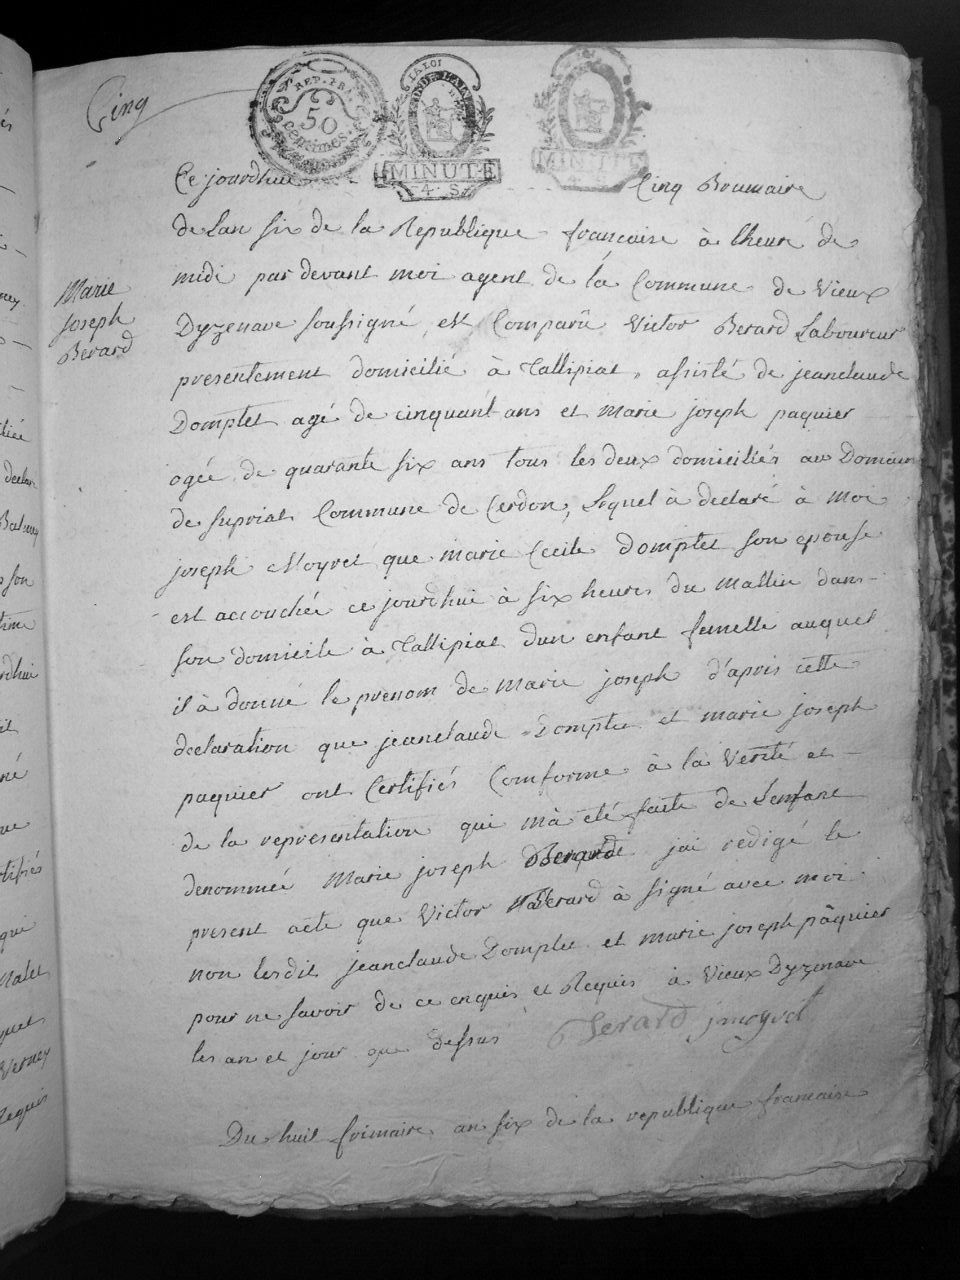 Cinq
REP. FRA.
50
centimes.
LA LOI
MINUTE
4. S.
MINUTE
4. S.
Ce jourdhui Cinq Brumaire
de Lan six de la Republique francaise à lheure de
midi par devant moi agent de la Commune de Vieux
Marie
joseph
Berard
Dyzenave soussigné, est Comparû Victor Berard Laboureur
presentement domicilié à Tallipiat, assisté de jeanclaude
Domptet agé de cinquant ans et Marie joseph paquier
agée de quarante six ans tous les deux domiciliés au Domaine
de supriat Commune de Cerdon, Lequel à declaré à Moi
joseph Moyret que marie Cecile Domptet son epouse
est accouchée ce jourdhui à six heures du Mattin dans
son domicile à Tallipiat dun enfant femelle auquel
il à donné le prenom de Marie joseph d'après cette
declaration que jeanclaude Domptet et marie joseph
paquier ont Certifiés Conforme à la Verité et
de la representation qui mà été faite de Lenfant
denommée Marie joseph Berard jai redigé le
present acte que Victor Berard à signé avec moi
non lesdit jeanclaude Domptet et marie joseph pâquier
pour ne savoir de ce enquis et Requis à Vieux Dyzenave
les an et jour que dessus Berard jmoyret
Du huit frimaire an six de la republique francaise